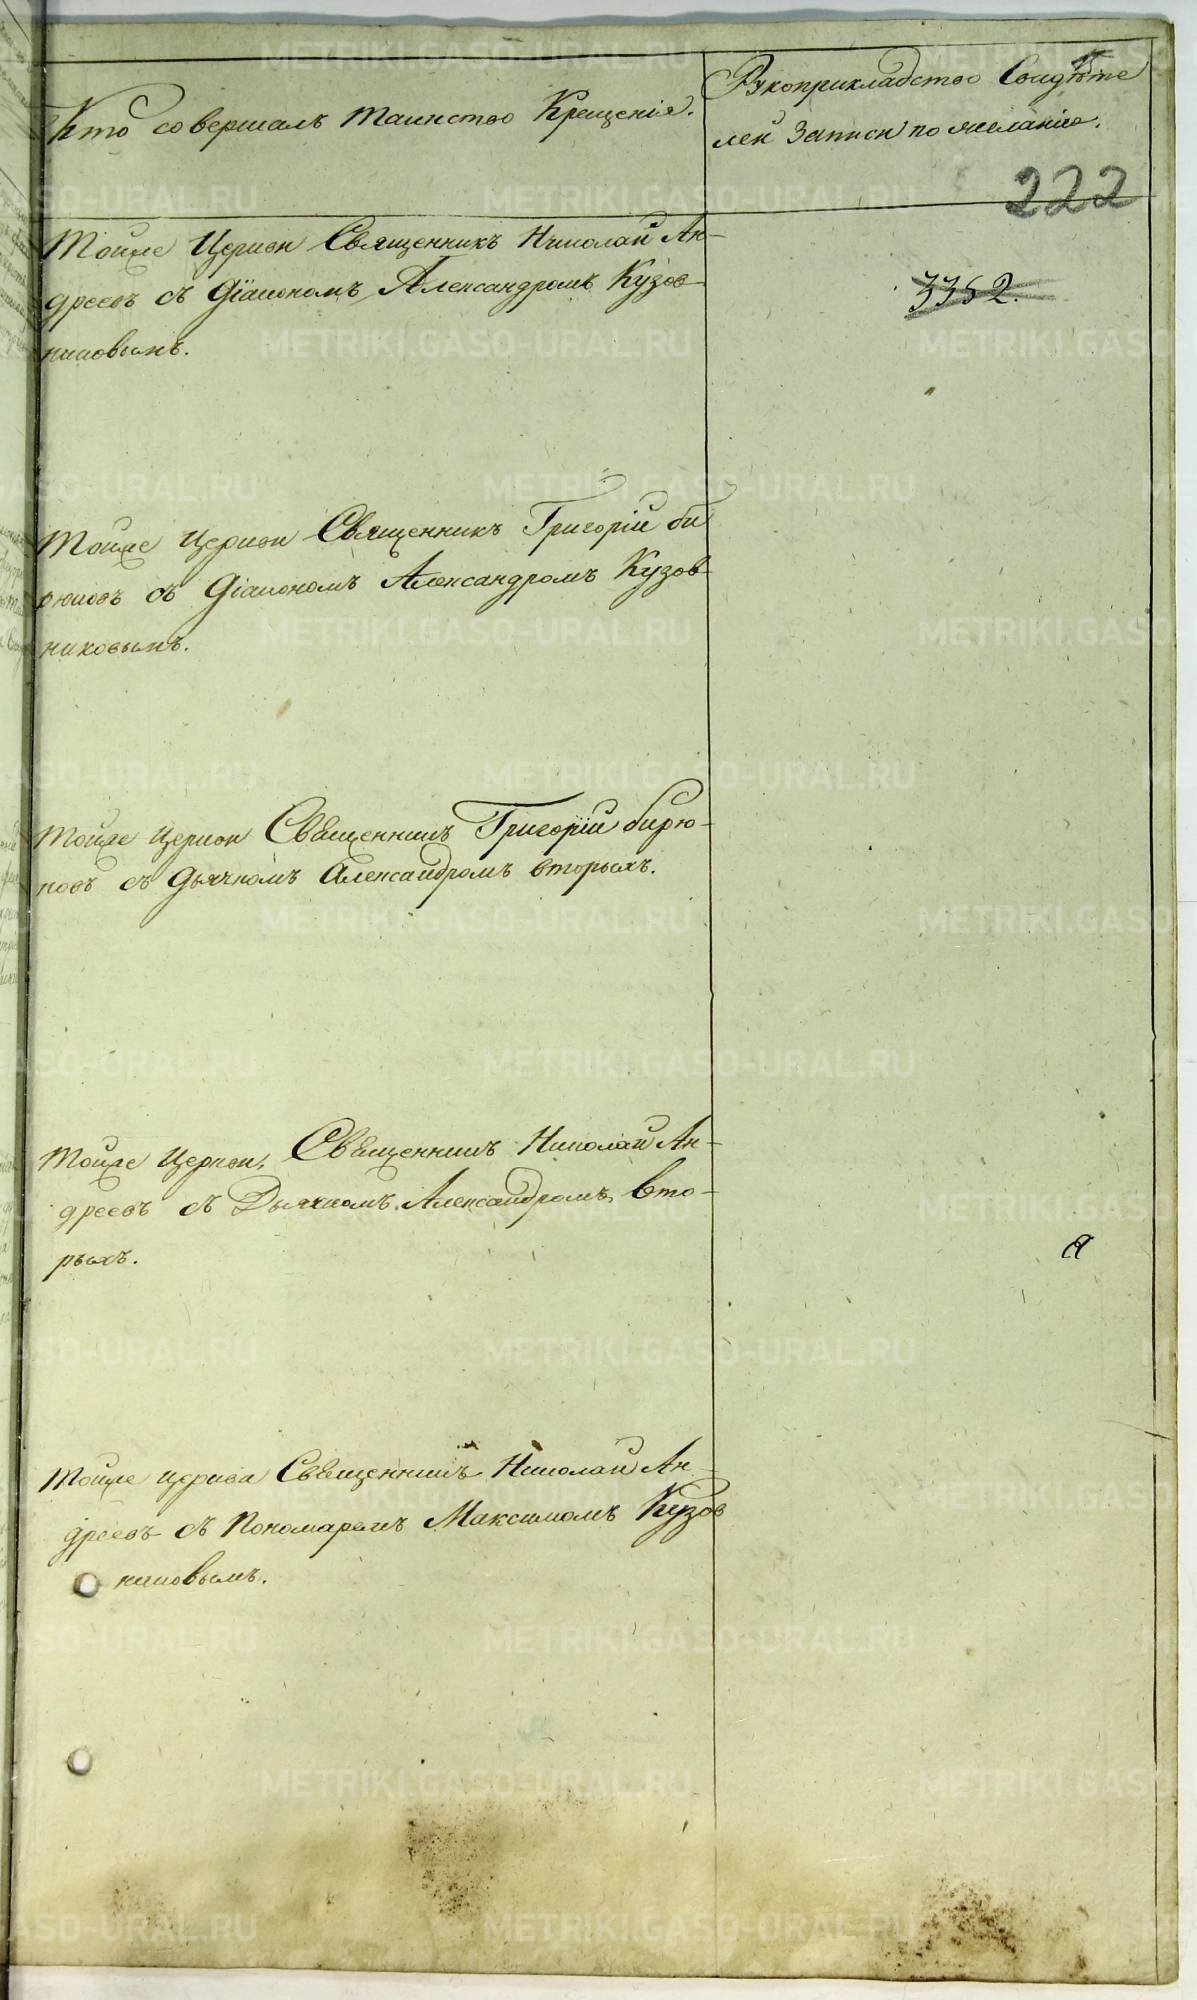 Кто совершалъ таинство Крещенія.
Рукоприкладство Свидѣте
лей записи по желанію.
222
Тойже Церкви Священникъ Николай Ан-
дреевъ съ Діакономъ Александромъ Кузов-
никовымъ.
3352.
Тойже Церкви Священникъ Григорій Би
рюковъ съ Діакономъ Александромъ Кузов-
никовымъ.
Тойже Церкви Священникъ Григорій Бирю-
ковъ съ Дьячкомъ Александромъ Вторыхъ.
Тойже Церкви, Священникъ Николай Ан-
дреевъ съ Дьячкомъ Александромъ Вто-
рыхъ.
Тойже Церкви Священникъ Николай Ан-
дреевъ съ Пономаремъ Максимомъ Кузов
никовымъ.
METRIKI.GASO-URAL.RU